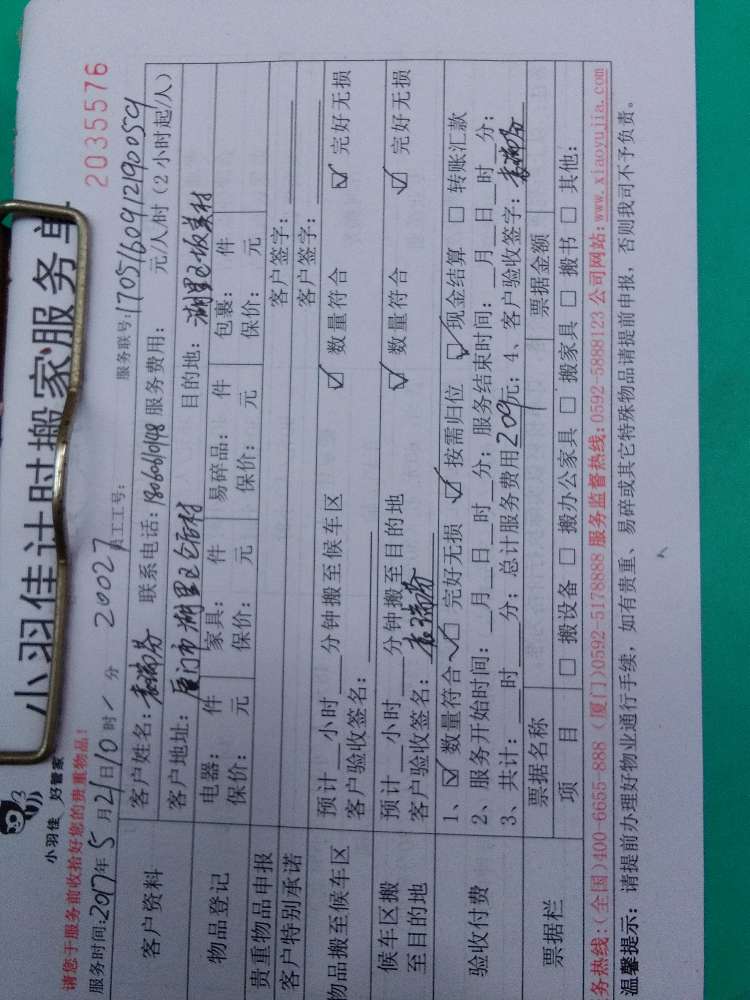 小羽佳 好管家
小羽佳计时搬家服务单
请您于服务前收拾好您的贵重物品!
2035576
服务时间:2017年5月21日10时 分 20027 员工工号: 服务联号:1705160912190059
客户资料
客户姓名: 联系电话:18060610148 服务费用: 元/人/时(2小时起/人)
客户地址:厦门市湖里区 村 目的地:湖里区坂美村
物品登记
电器: 件 家具: 件 易碎品: 件 包裹: 件
保价: 元 保价: 元 保价: 元 保价: 元
贵重物品申报 客户签字:
客户特别承诺 客户签字:
物品搬至候车区
预计__小时__分钟搬至候车区 ☑ 数量符合 ☑ 完好无损
客户验收签名:
候车区搬至目的地
预计__小时__分钟搬至目的地 ☑ 数量符合 ☑ 完好无损
客户验收签名:
验收付费
1、☑ 数量符合 ☑ 完好无损 ☑ 按需归位 ☑ 现金结算 □ 转账汇款
2、服务开始时间:__月__日__时__分;服务结束时间:__月__日__时__分;
3、共计:__时__分;总计服务费用209元;4、客户验收签字:
票据栏
票据名称 票据金额
项 目 □ 搬设备 □ 搬办公家具 □ 搬家具 □ 搬书 □ 其他:
务热线:(全国)400-6655-888 (厦门)0592-5178888 服务监督热线:0592-5888123 公司网站:www.xiaoyujia.com
温馨提示: 请提前办理好物业通行手续, 如有贵重、易碎或其它特殊物品请提前申报, 否则我司不予负责。